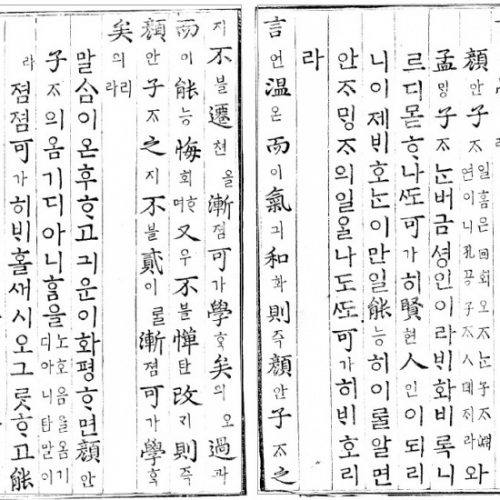 顔안子ᄌᆞ일홈은回회연이니孔공子ᄌᆞㅅ데ᄌᆞ라와
孟ᄆᆡᆼ子ᄌᆞᄂᆞᆫ버금셩인이라ᄇᆡ화비록니
르디몯ᄒᆞ나ᄯᅩ可가히賢현人인이되리
니이제ᄇᆡ호ᄂᆞᆫ이만일能능히이ᄅᆞᆯ알면
안ᄌᆞᄆᆡᆼᄌᆞ의일을나도ᄯᅩ可가히ᄇᆡ호리
라
言언溫온而이氣긔和화則즉顔안子ᄌᆞ之
지不블遷쳔을漸졈可가學ᄒᆞᆨ矣의오過과
而이能능悔회ᄒᆞ며又우不블憚탄改ᄀᆡ則즉
顔안子ᄌᆞ之지不블貳이ᄅᆞᆯ漸졈可가學ᄒᆞᆨ
矣의리라
말ᄉᆞᆷ이온후ᄒᆞ고긔운이화평ᄒᆞ면顔안
子ᄌᆞ의옴기디아니홈을노호음을옴기디아니탄말이
라졈졈可가히ᄇᆡ홀새시오그릇ᄒᆞ고能